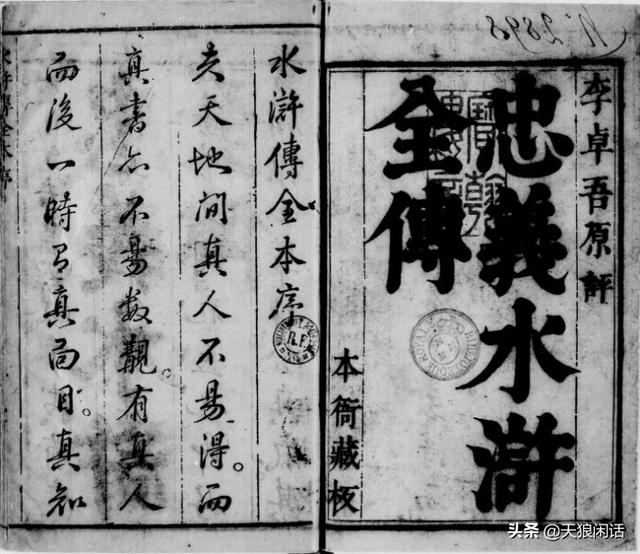 李卓吾原評
忠義水滸
全傳
本衙藏板
水滸傳全本序
夫天地間真人不易得。而
真書亦不易數覯。有真人
而後一時有真面目。真知
头条 @天狼闲话